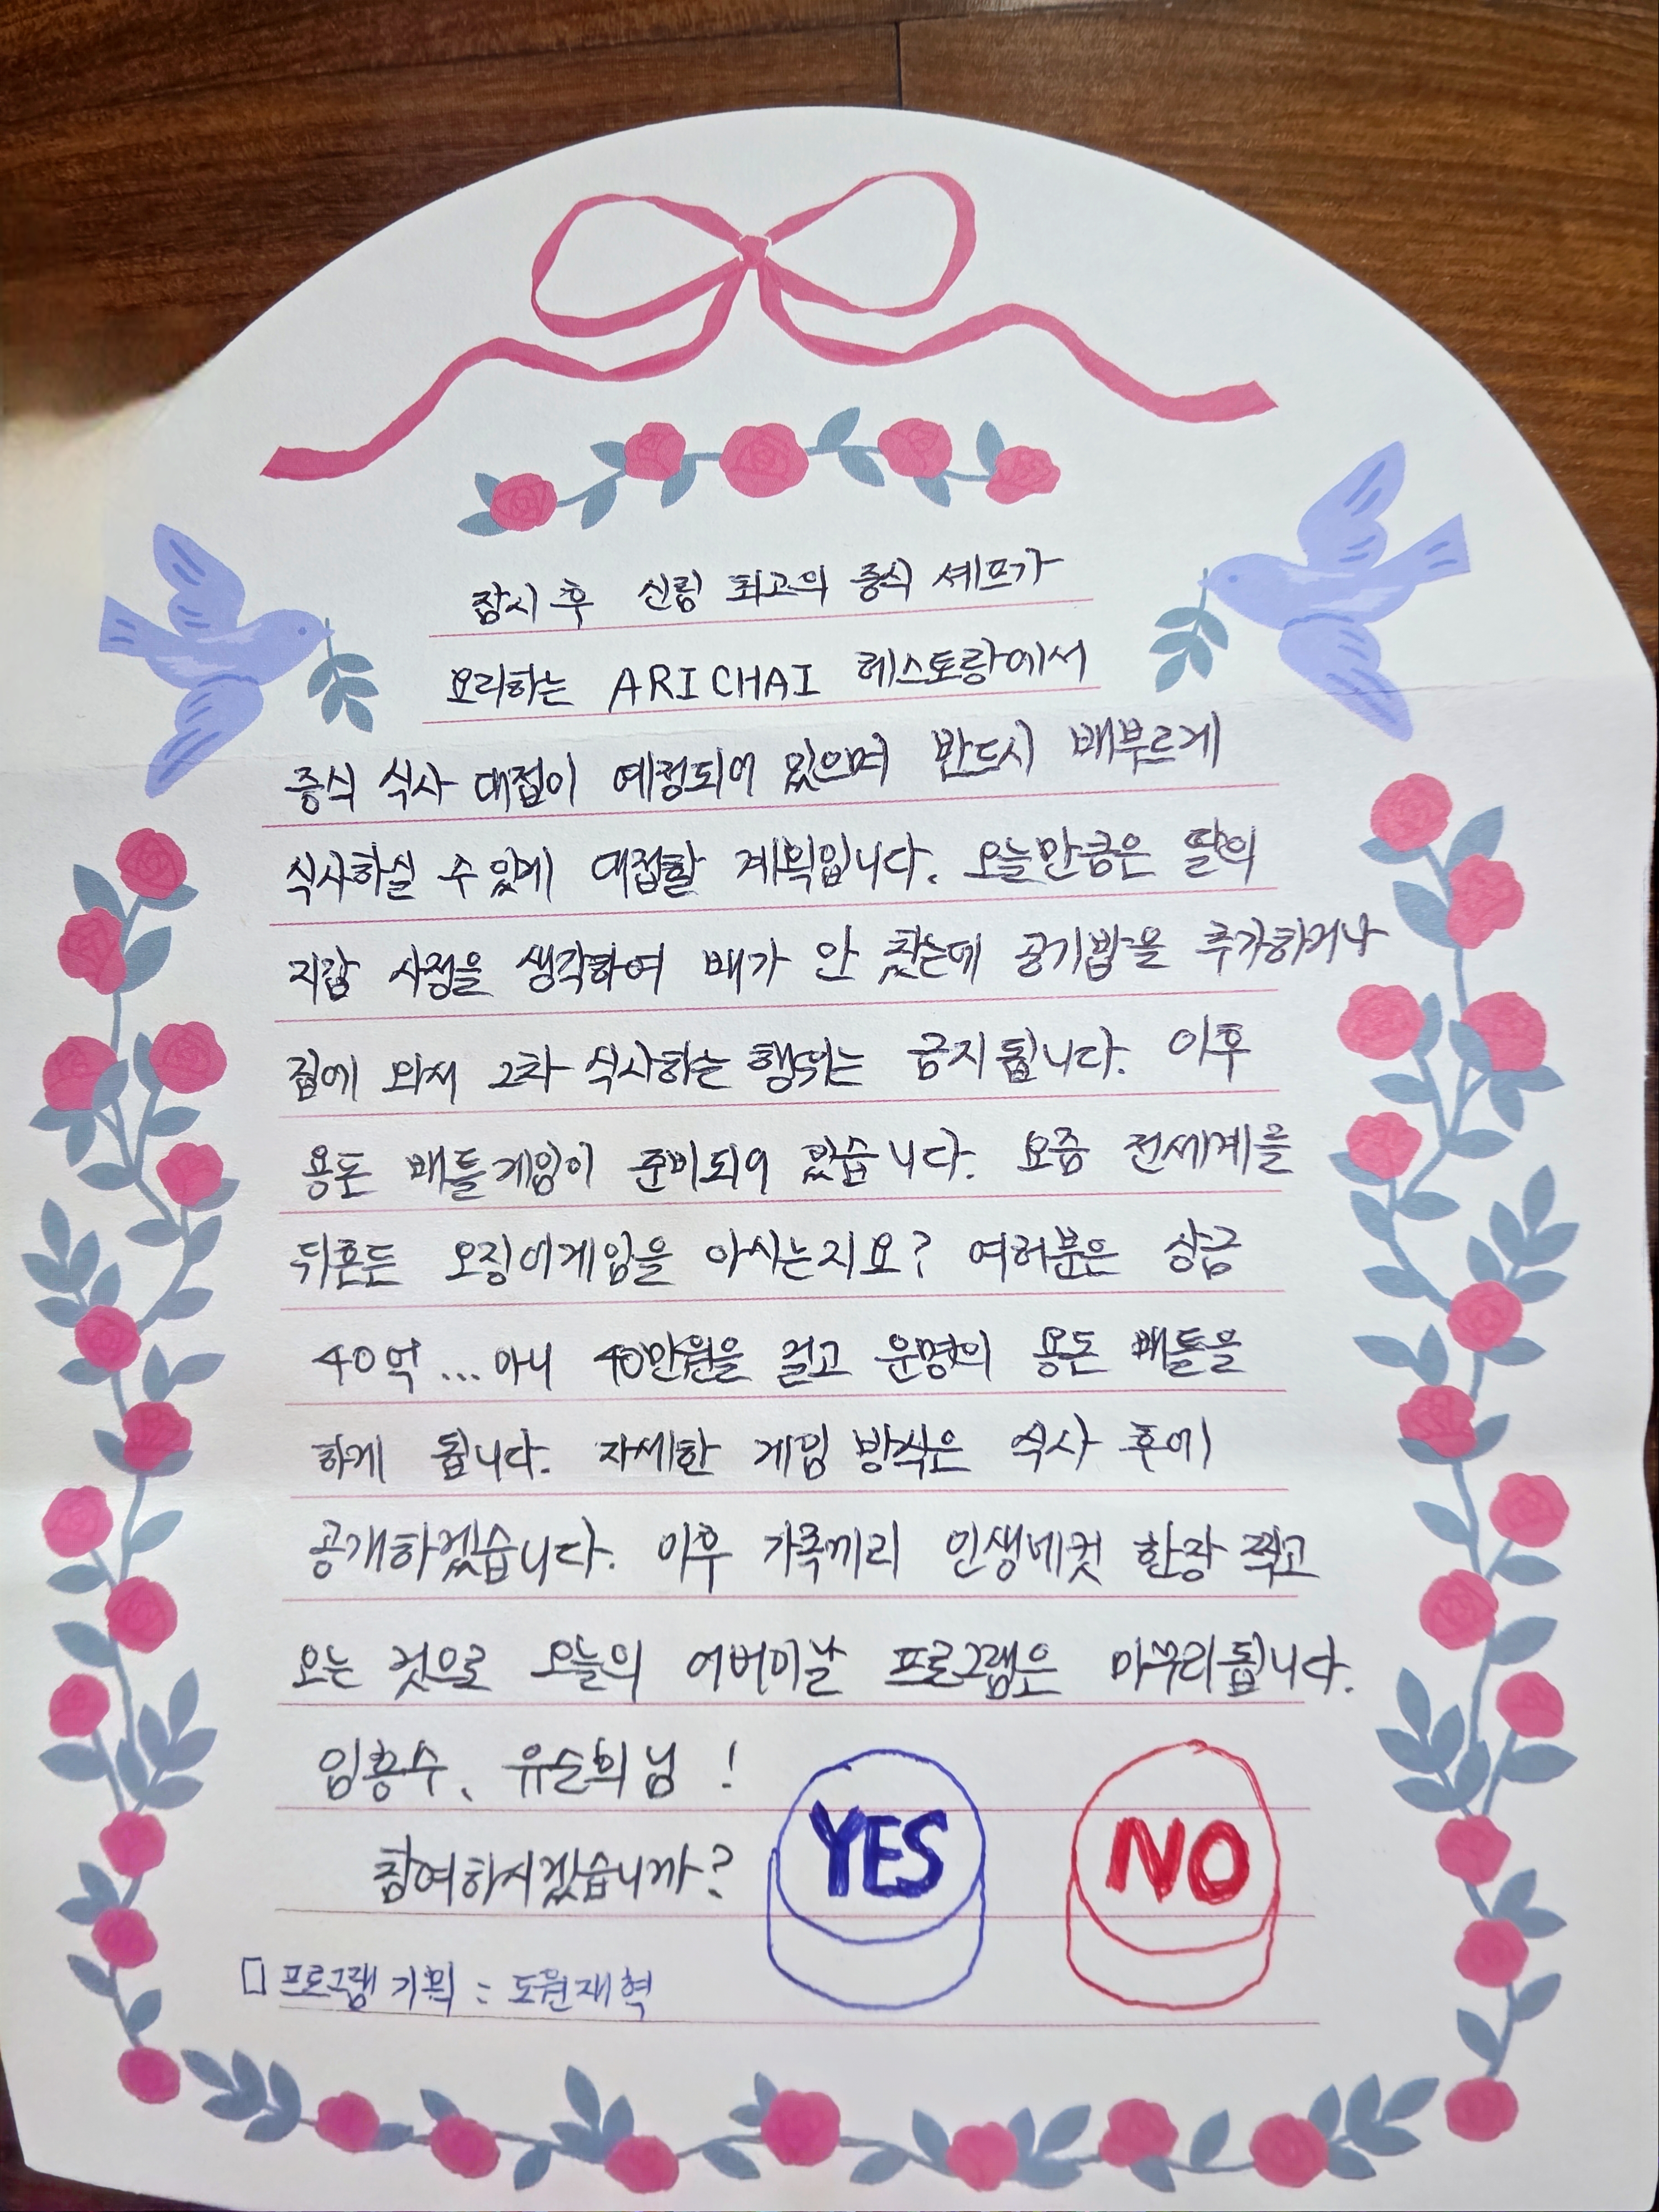 잠시 후 신림 최고의 중식 셰프가
요리하는 ARICHAI 레스토랑에서
중식 식사 대접이 예정되어 있으며 반드시 배부르게
식사하실 수 있게 대접할 계획입니다. 오늘만큼은 딸의
지갑 사정을 생각하여 배가 안 찼는데 공기밥을 추가하거나
집에 와서 2차 식사하는 행위는 금지됩니다. 이후
용돈 배틀게임이 준비되어 있습니다. 요즘 전세계를
뒤흔든 오징어게임을 아시는지요? 여러분은 상금
40억...아니 40만원을 걸고 운명의 용돈 배틀을
하게 됩니다. 자세한 게임 방식은 식사 후에
공개하겠습니다. 이후 가족끼리 인생네컷 한장 찍고
오는 것으로 오늘의 어버이날 프로그램은 마무리됩니다.
임흥수, 유순희님 !
참여하시겠습니까?
YES
NO
□ 프로그램 기획 : 도원재혁